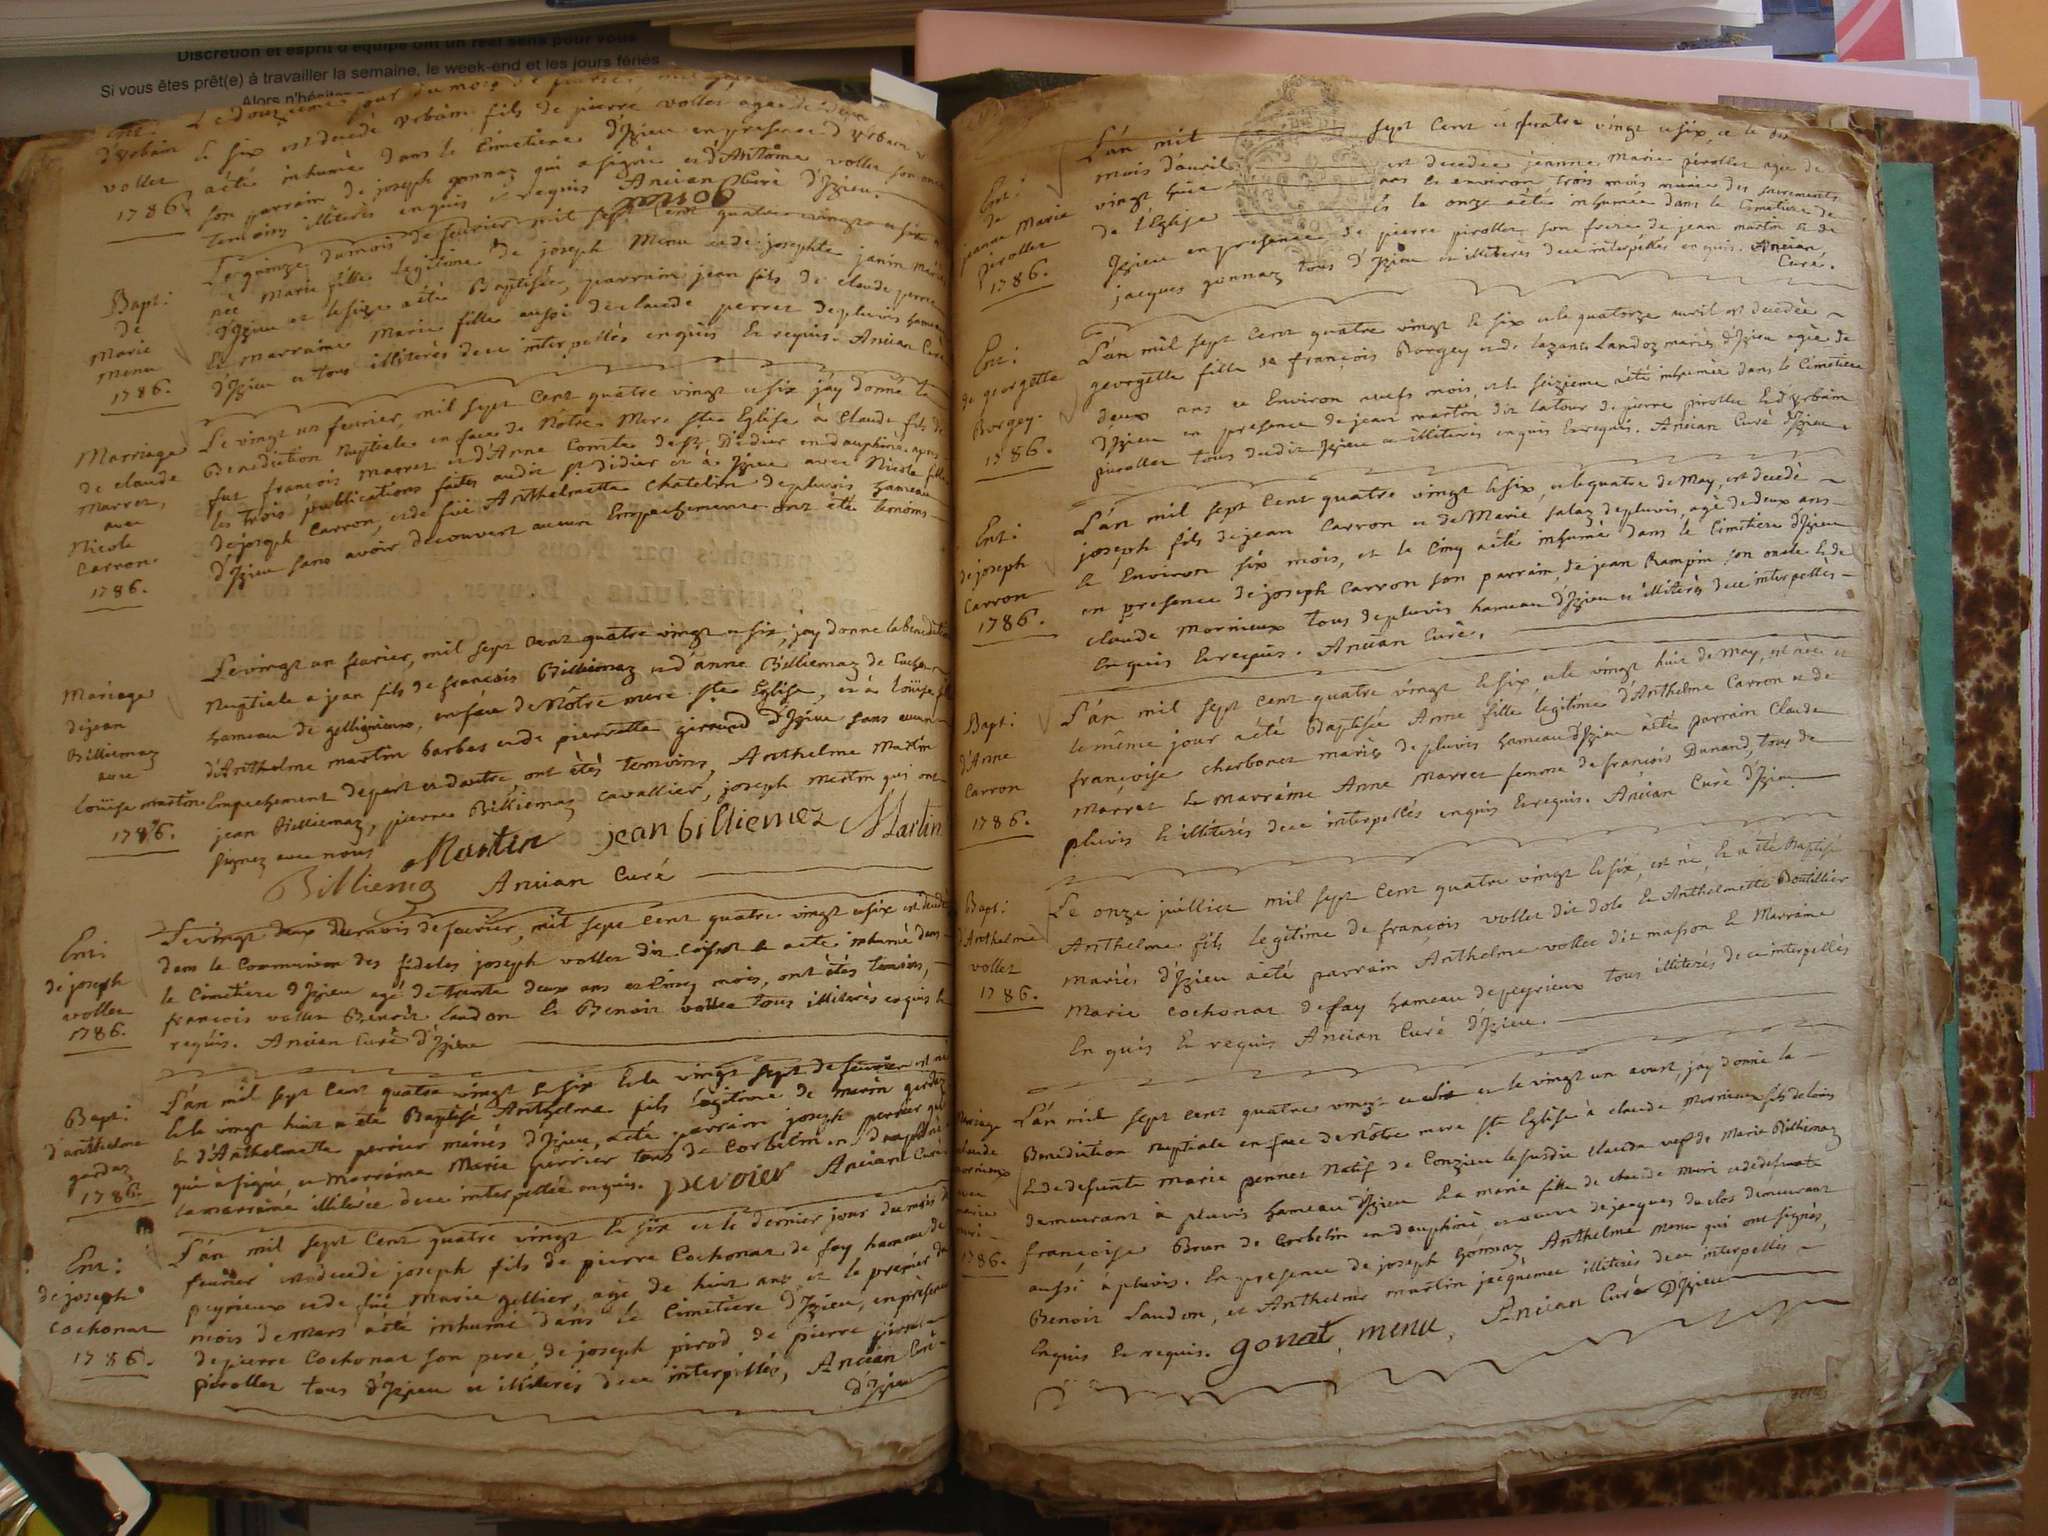 Discretion et esprit d'équipe ont un réel sens pour vous
Si vous êtes prêt(e) à travailler la semaine, le week-end et les jours fériés
Alors n'hésitez
Ent:
d'Urbain
vollet
1786.
Le douzieme jour du mois de
le six est decedé Urbain fils de pierre vollet agé de
a été inhumé dans le Cimetiere d'Izieu en presence d'Urbain
son parrain de joseph gonnaz qui a signé et d'Antoine vollet son oncle
temoins illiterés enquis et requis Ancian Curé d'Izieu.
Bapt:
de
Marie
menu
1786.
Le quinze du mois de fevrier mil sept cent quatre vingt et six
née Marie fille legitime de joseph Menu et de josephte janin mariés
d'Izieu et le seize a été Baptisée, parrain jean fils de claude perret
Et marraine Marie fille aussi de claude perret de pluvis hameau
d'Izieu et tous illiterés de ce interpellés enquis Et requis. Ancian Curé
Marriage
de claude
Marret,
avec
Nicole
Carron.
1786.
Le vingt un fevrier, mil sept cent quatre vingt et six j'ay donné la
Benediction Nuptiale en face de Nôtre Mere Ste Eglise à Claude fils de
fut françois marret et d'Anne Comte de St Didier en dauphiné apres
les trois publications faites audit St didier et à Izieu avec Nicole fille
de joseph Carron, et de fuë Anthelmette chatelin de pluvis hameau
d'Izieu sans avoir decouvert aucun Empechement ont été temoins
Mariage
de jean
Billiemaz
avec
Loüise martin
1786.
Le vingt un fevrier, mil sept cent quatre vingt et six, j'ay donné la benediction
Nuptiale a jean fils de françois Billiemaz et d'anne Billiemaz de
hameau de gelligneux, en face de Nôtre mere Ste Eglise, et à loüise fille
d'Anthelme martin barbet et de pierrette giroud d'Izieu sans aucun
Empechement de part et d'autre ont étés temoins Anthelme Martin
jean Billiemaz, pierre Billiemaz cavallier, joseph martin qui ont
signez avec nous Martin jean billiemez Martin
Billiemaz Ancian Curé
Ent:
de joseph
vollet
1786.
Le vingt deux du mois de fevrier, mil sept cent quatre vingt et six est decedé
dans la Communion des fideles joseph vollet dit a été inhumé dans
le Cimetiere d'Izieu agé de trente deux ans et Cinq mois, ont étés temoins,
françois vollet Benoit Landon Et Benoit vollet tous illiterés enquis Et
requis. Ancian Curé d'Izieu
Bapt:
d'anthelme
gardaz
1786.
L'an mil sept cent quatre vingt Et six Et le vingt sept de fevrier est né
Et le vingt huit a été Baptisé Anthelme fils legitime de gardaz
Et d'Anthelmette perrier mariés d'Izieu, a été parrain joseph perrier
qui a signé, et marraine Marie perrier tous de Corbelin en dauphiné
la marraine illiterée de ce interpellée enquis. perrier Ancian Curé
Ent:
de joseph
Cochonat
1786.
L'an mil sept cent quatre vingt Et six et le dernier jour du mois de
fevrier est decedé joseph fils de pierre Cochonat de fay hameau de
peyrieux et de fuë Marie gellier, agé de huit ans et le premier du
mois de mars a été inhumé dans le Cimetiere d'Izieu, en presence
de pierre Cochonat son pere, de joseph pirod de pierre
pirollet tous d'Izieu et illiterés de ce interpellés, Ancian Curé
d'Izieu
Ent:
de
jeanne Marie
pirollet
1786.
L'an mil sept cent et quatre vingt et six, et le
mois d'avril est decedée jeanne Marie pirollet agée de
vingt huit ans et environ trois mois munie des sacrements
de l'Eglise et le onze a été inhumée dans le Cimetiere de
Izieu en presence de pierre pirollet son frere de jean martin Et de
jacques gonnaz tous d'Izieu et illiterés de ce interpellés enquis. Ancian
Curé.
Ent:
de georgette
Borgey.
1786.
L'an mil sept cent quatre vingt Et six et le quatorze avril est decedée
georgette fille de françois Borgey et de Landoz mariés d'Izieu agée de
deux ans et Environ neufs mois, et le seizieme a été inhumée dans le Cimetiere
d'Izieu en presence de jean martin dit latour de pierre pirollet Et d'Urbain
pirollet tous dudit Izieu et illiterés enquis Et requis. Ancian Curé d'Izieu.
Ent:
de joseph
Carron
1786.
L'an mil sept cent quatre vingt Et six, et le quatre de May, est decedé
joseph fils de jean Carron et de Marie de pluvis, agé de deux ans
Et Environ six mois, et le Cinq a été inhumé dans le Cimetiere d'Izieu
en presence de joseph Carron son parrain, de jean Rampin son oncle Et de
claude Mornieux tous de pluvis hameau d'Izieu et illiterés de ce interpellés
Enquis Et requis. Ancian Curé.
Bapt:
d'Anne
Carron
1786.
L'an mil sept cent quatre vingt Et six, et le vingt huit de May, est née et
le même jour a été Baptisée Anne fille legitime d'Anthelme Carron et de
françoise charbonet mariés de pluvis hameau d'Izieu a été parrain Claude
Marret Et Marraine Anne Marret femme de françois Dunand, tous de
pluvis Et illiterés de ce interpellés enquis Et requis. Ancian Curé d'Izieu
Bapt:
d'Anthelme
vollet
1786.
Le onze juillet mil sept cent quatre vingt Et six, est né, Et a été Baptisé
Anthelme fils legitime de françois vollet dit dole Et Anthelmette Boutillier
mariés d'Izieu a été parrain Anthelme vollet dit masson Et Marraine
Marie cochonat de fay hameau de peyrieux tous illiterés de ce interpellés
Enquis Et requis Ancian Curé d'Izieu.
Mariage
claude
mornieux
avec
marie
1786.
L'an mil sept cent quatre vingt et six et le vingt un aoust, j'ay donné la
Benediction Nuptiale en face de Nôtre mere Ste Eglise à claude Mornieux fils de loüis
Et de defunte marie pennet Natif de Conzieu le susdit claude veuf de Marie Billiemaz
demeurant à pluvis hameau d'Izieu Et a marie fille de claude et de defunte
françoise Brun de Corbelin en dauphiné, et veuve de jacques duclos demeurant
aussi à pluvis. En presence de joseph gonnaz Anthelme Menu qui ont signés,
Benoit Landon, et Anthelme martin jacquemet illiterés de ce interpellés
Enquis Et requis. gonat, menu, Ancian Curé D'Izieu